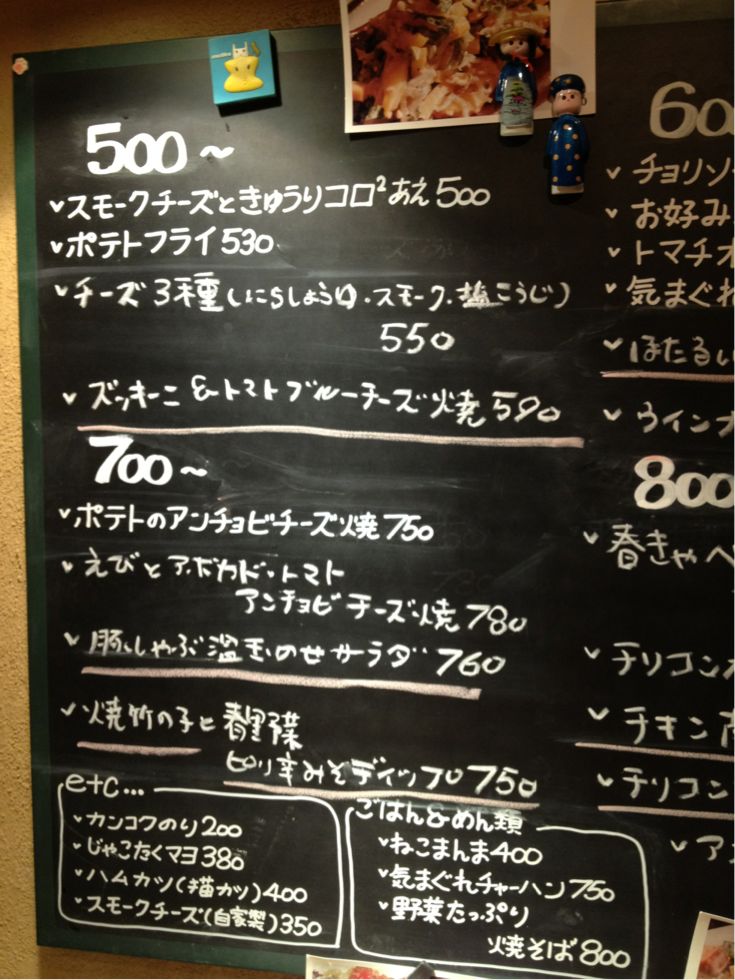 500~
スモークチーズときゅうりコロ²あえ500
ポテトフライ530
チーズ3種(にらしょうゆ・スモーク・塩こうじ)
550
ズッキーニ&トマトブルーチーズ焼590
700~
ポテトのアンチョビチーズ焼750
えびとアボカド・トマト
アンチョビチーズ焼780
豚しゃぶ温玉のせサラダ760
焼竹の子と春野菜
ピリ辛みそディップ750
etc...
カンコクのり200
じゃこたくマヨ380
ハムカツ(猫カツ)400
スモークチーズ(自家製)350
ごはん&めん類
ねこまんま400
気まぐれチャーハン750
野菜たっぷり
焼そば800
60
チョリソ
お好み
トマチオ
気まぐれ
ほたるい
ウインナ
800
春きゃべ
チリコン
チキン
チリコン
ア